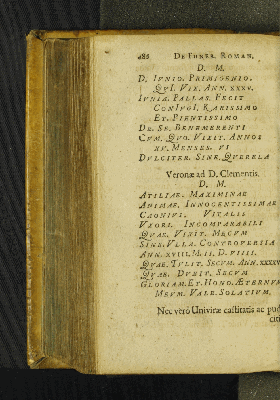 286 DE FUNER. ROMAN.
D. M.
D. IVNIO. PRIMIGENIO.
QVI. VIX. ANN. XXXV.
IVNIA. PALLAS. FECIT
CONIVGI. KARISSIMO
ET. PIENTISSIMO
DE. SE. BENEMERENTI
CVM. QVO. VIXIT. ANNOS
XV. MENSES. VI
DVLCITER. SINE. QVERELA
Veronæ ad D. Clementis.
D. M.
ATILIAE. MAXIMINAE
ANIMAE. INNOCENTISSIMAE
CAONIVS. VITALIS
VXORI. INCOMPARABILI
QVAE. VIXIT. MECVM
SINE. VLLA. CONTROVERSIA
ANN. XVIII. M. II. D. VIIII.
QVAE. TVLIT. SECVM. ANN. XXXXV
QVAE. DVXIT. SECVM
GLORIAM. ET. HONO. ÆTERNVM
MEVM. VALE. SOLATIVM.
Nec verò Univiræ castitatis ac pud